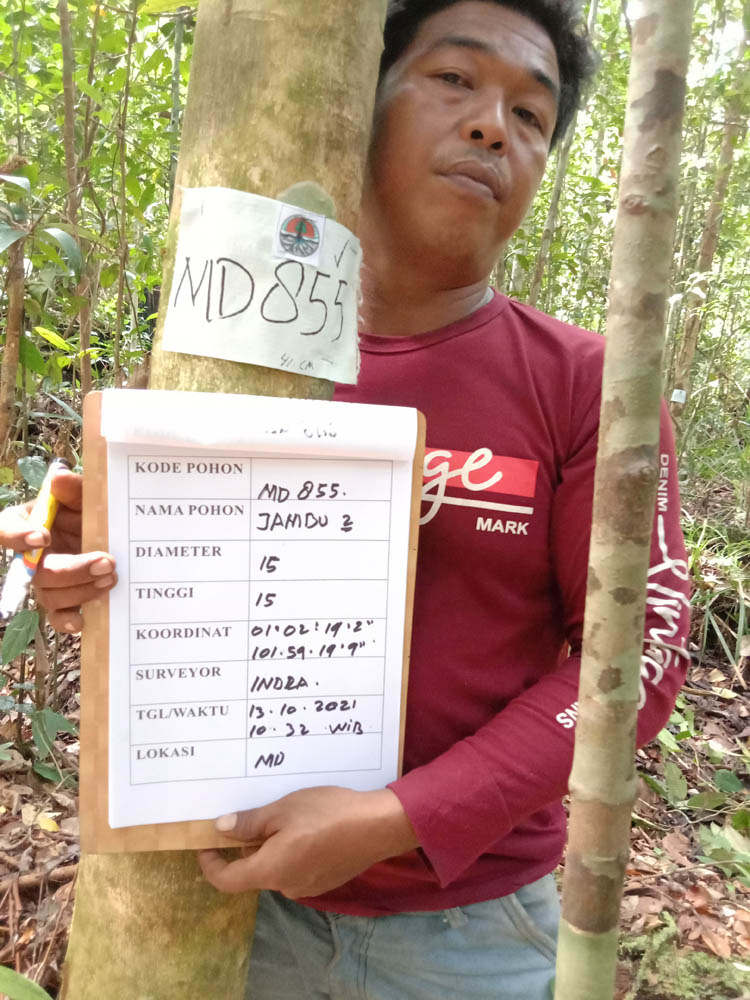 MD 855
41. CM
KODE POHON MD 855.
NAMA POHON JAMBU 2
DIAMETER 15
TINGGI 15
KOORDINAT 01°02'.19'2"
101.59.19'9"
SURVEYOR INDRA.
TGL/WAKTU 13.10.2021
10.32 WIB
LOKASI MD
ge
MARK
DENIM